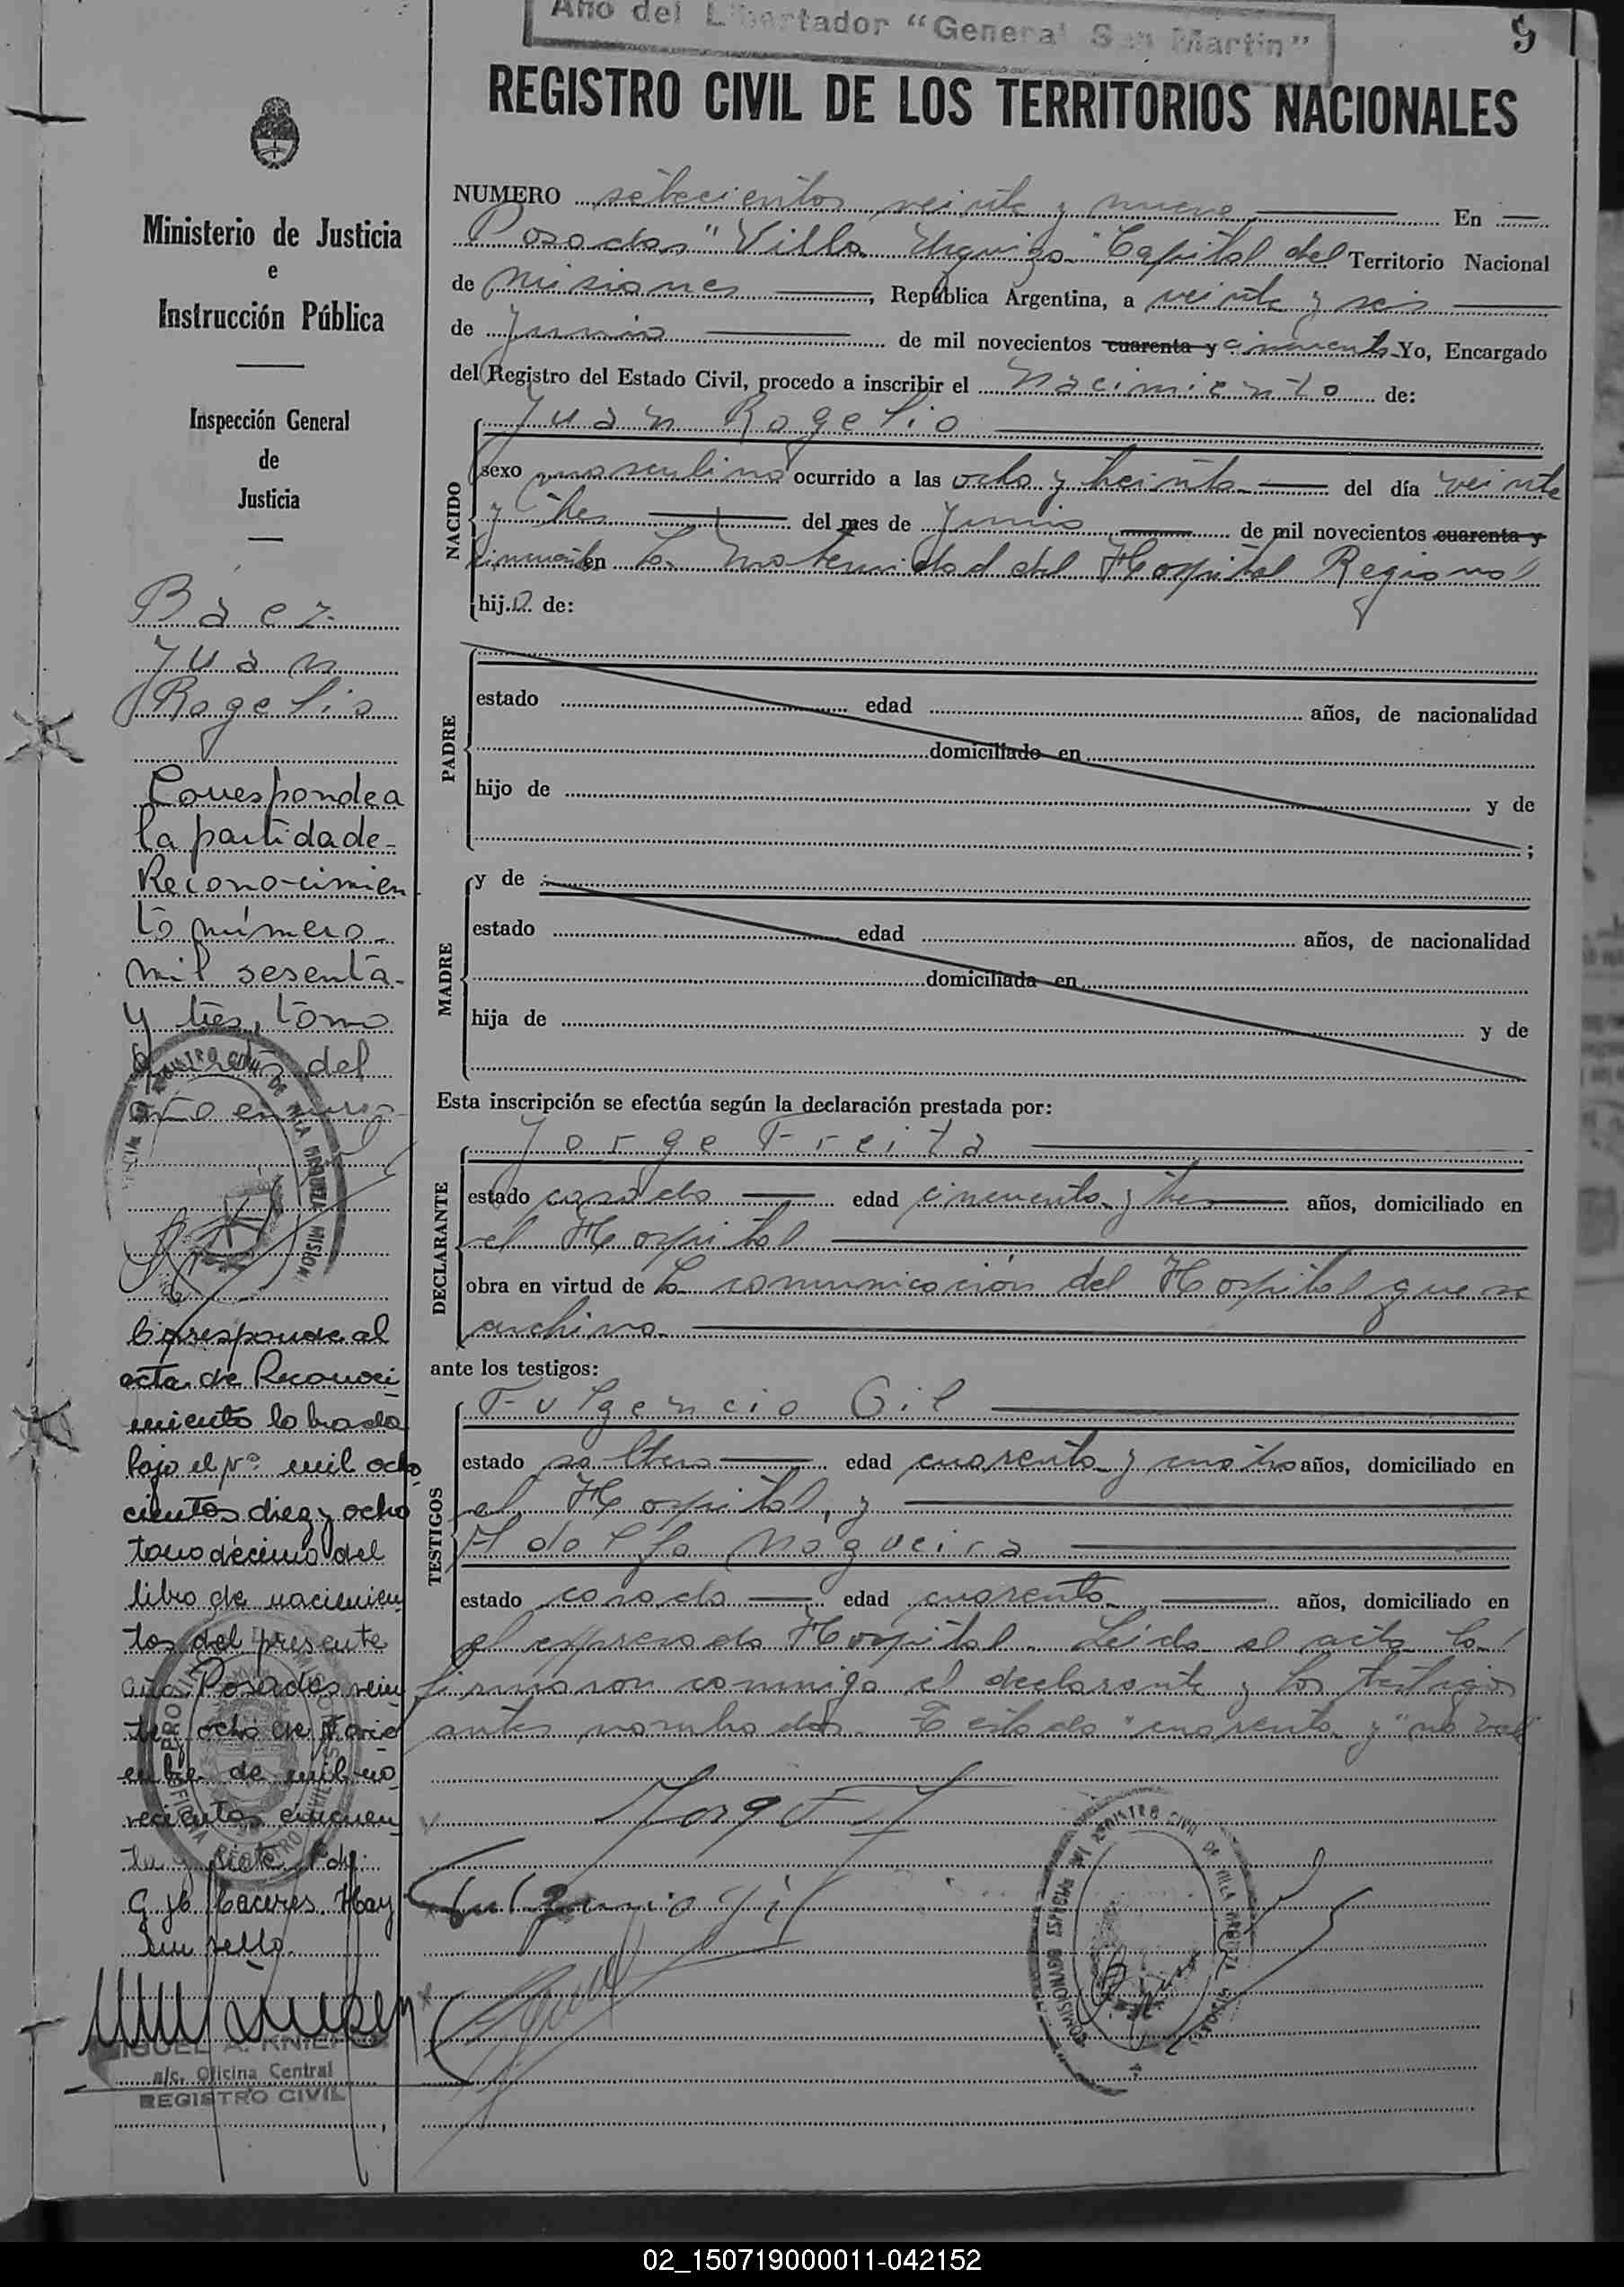 Año del Libertador "General San Martin"
9
REGISTRO CIVIL DE LOS TERRITORIOS NACIONALES
Ministerio de Justicia
e
Instrucción Pública
Inspección General
de
Justicia
Baez
Juan
Rogelio
Corresponde a
la partida de
Reconocimien
to número
mil sesenta
y tres, tomo
del
año en curso
Corresponde al
acta de Reconoci
miento labrada
bajo el Nº mil ocho
cientos diez y ocho
tomo décimo del
libro de nacimien
tos del presente
año Posadas vein
te ocho de Novi
embre de mil no
vecientos cincuen
ta y siete. Fdo:
G. Jb. Caceres. Hay
un sello.
MIGUEL A.
a/c. Oficina Central
REGISTRO CIVIL
NUMERO setecientos veinte y nueve En
Posadas "Villa Urquiza" Capital del Territorio Nacional
de Misiones, República Argentina, a veinte y seis
de Junio de mil novecientos cuarenta y cincuenta Yo, Encargado
del Registro del Estado Civil, procedo a inscribir el Nacimiento de:
NACIDO
Juan Rogelio
sexo masculino ocurrido a las ocho y treinta del día veinte
y tres del mes de Junio de mil novecientos cuarenta y
cincuenta en la Maternidad del Hospital Regional
hijo de:
PADRE
estado edad años, de nacionalidad
domiciliado en
hijo de y de
;
MADRE
y de
estado edad años, de nacionalidad
domiciliada en
hija de y de
Esta inscripción se efectúa según la declaración prestada por:
DECLARANTE
Jorge Freita
estado casado edad cincuenta y tres años, domiciliado en
el Hospital
obra en virtud de la comunicación del Hospital que se
archiva
ante los testigos:
TESTIGOS
Fulgencio Gil
estado soltero edad cuarenta y cuatro años, domiciliado en
el Hospital, y
Adolfo Nogueira
estado casado edad cuarenta años, domiciliado en
el expresado Hospital. Leida el acta la
firmaron conmigo el declarante y los testigos
antes nombrados. Testado "cuarenta y" no vale
Jorge F
Fulgencio Gil
02_150719000011-042152